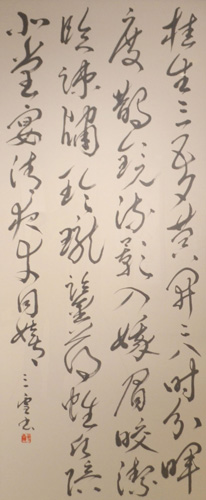 桂生三五夕蓂開二八時分暉
度鵲鏡流影入蛾眉皎潔
臨疎牖玲瓏鑒薄帷願陪
北堂宴清夜幸同嬉
書